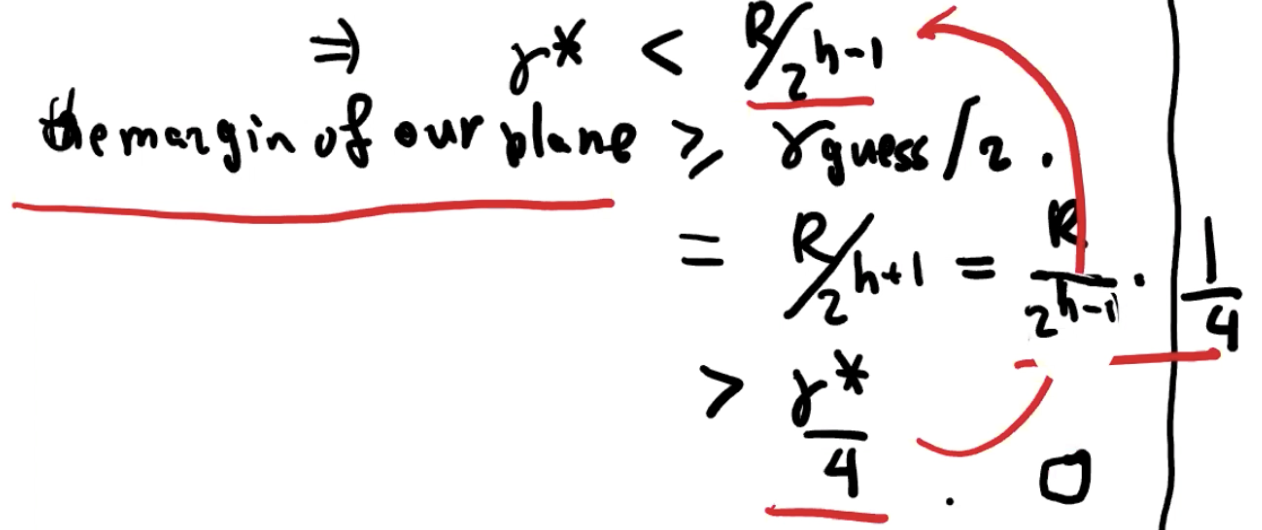 ⇒ γ* < R/2^{h-1}
the margin of our plane ≥ γguess/2.
= R/2^{h+1} = R/2^{h-1} · 1/4
> γ*/4 . □